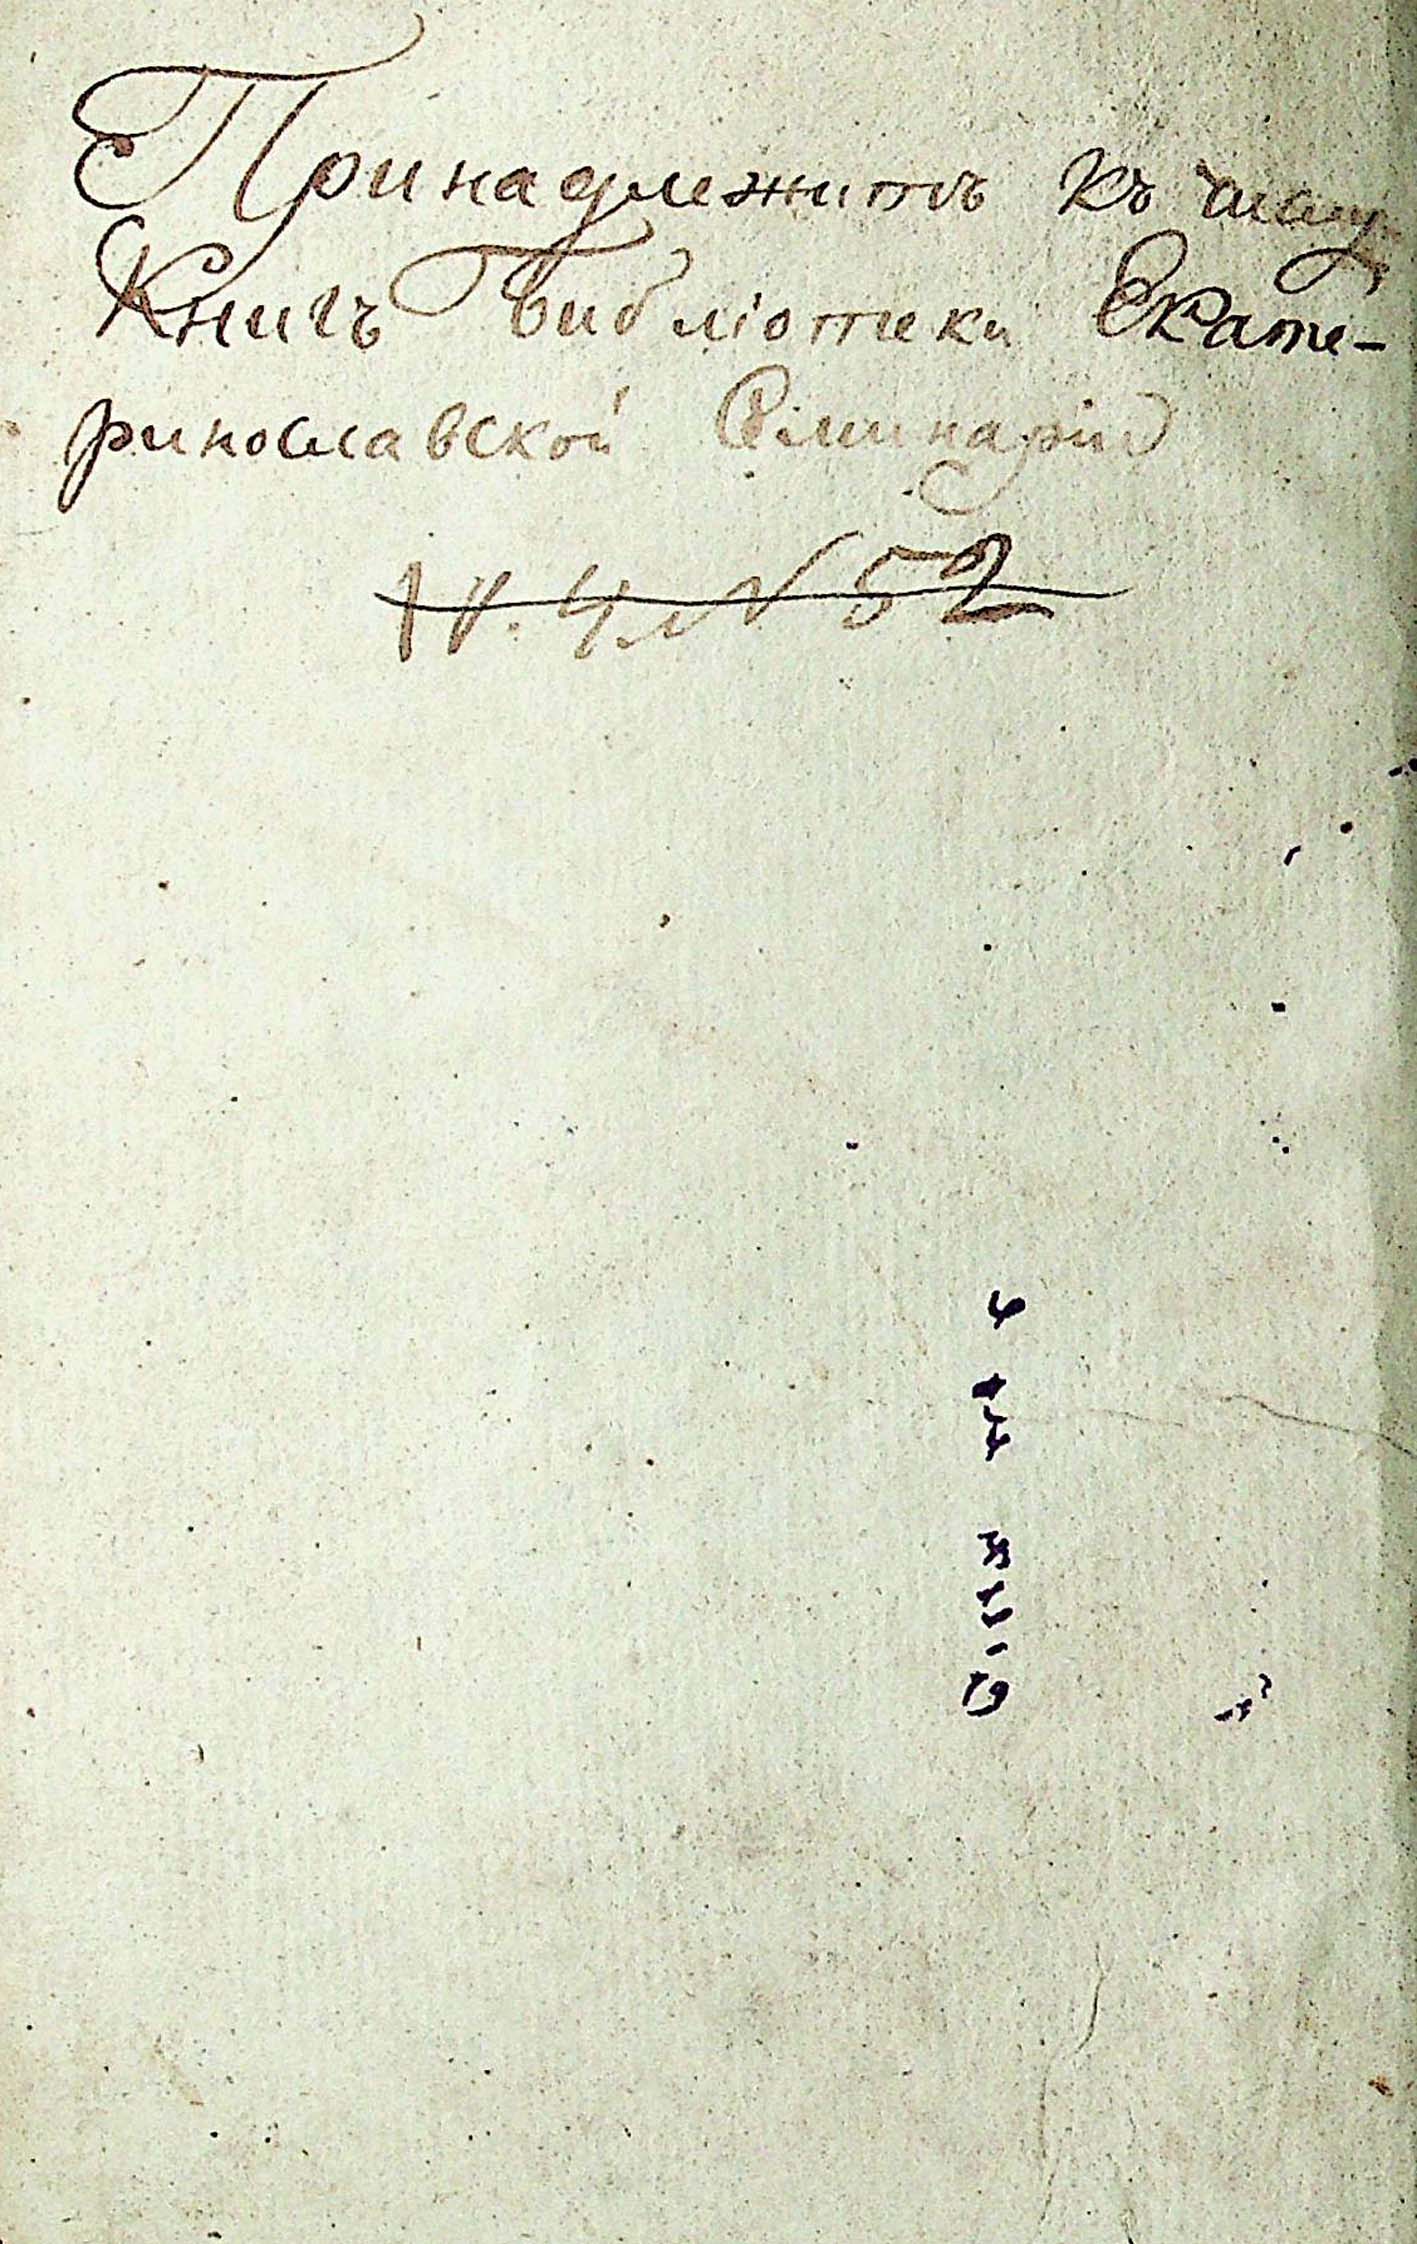 Принадлежитъ къ числу
Книгъ Библіотеки Екате-
ринославской Семинаріи
IV. Ч. N 52